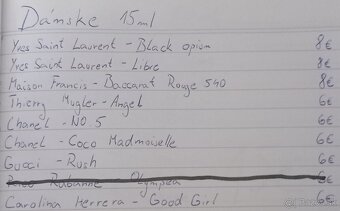 Dámske 15ml
Yves Saint Laurent - Black opium 8€
Yves Saint Laurent - Libre 8€
Maison Francis - Baccarat Rouge 540 8€
Thierry Mugler - Angel 6€
Chanel - NO.5 6€
Chanel - Coco Madmowelle 6€
Gucci - Rush 6€
Rabanne Olympea 6€
Carolina Herrera - Good Girl 6€